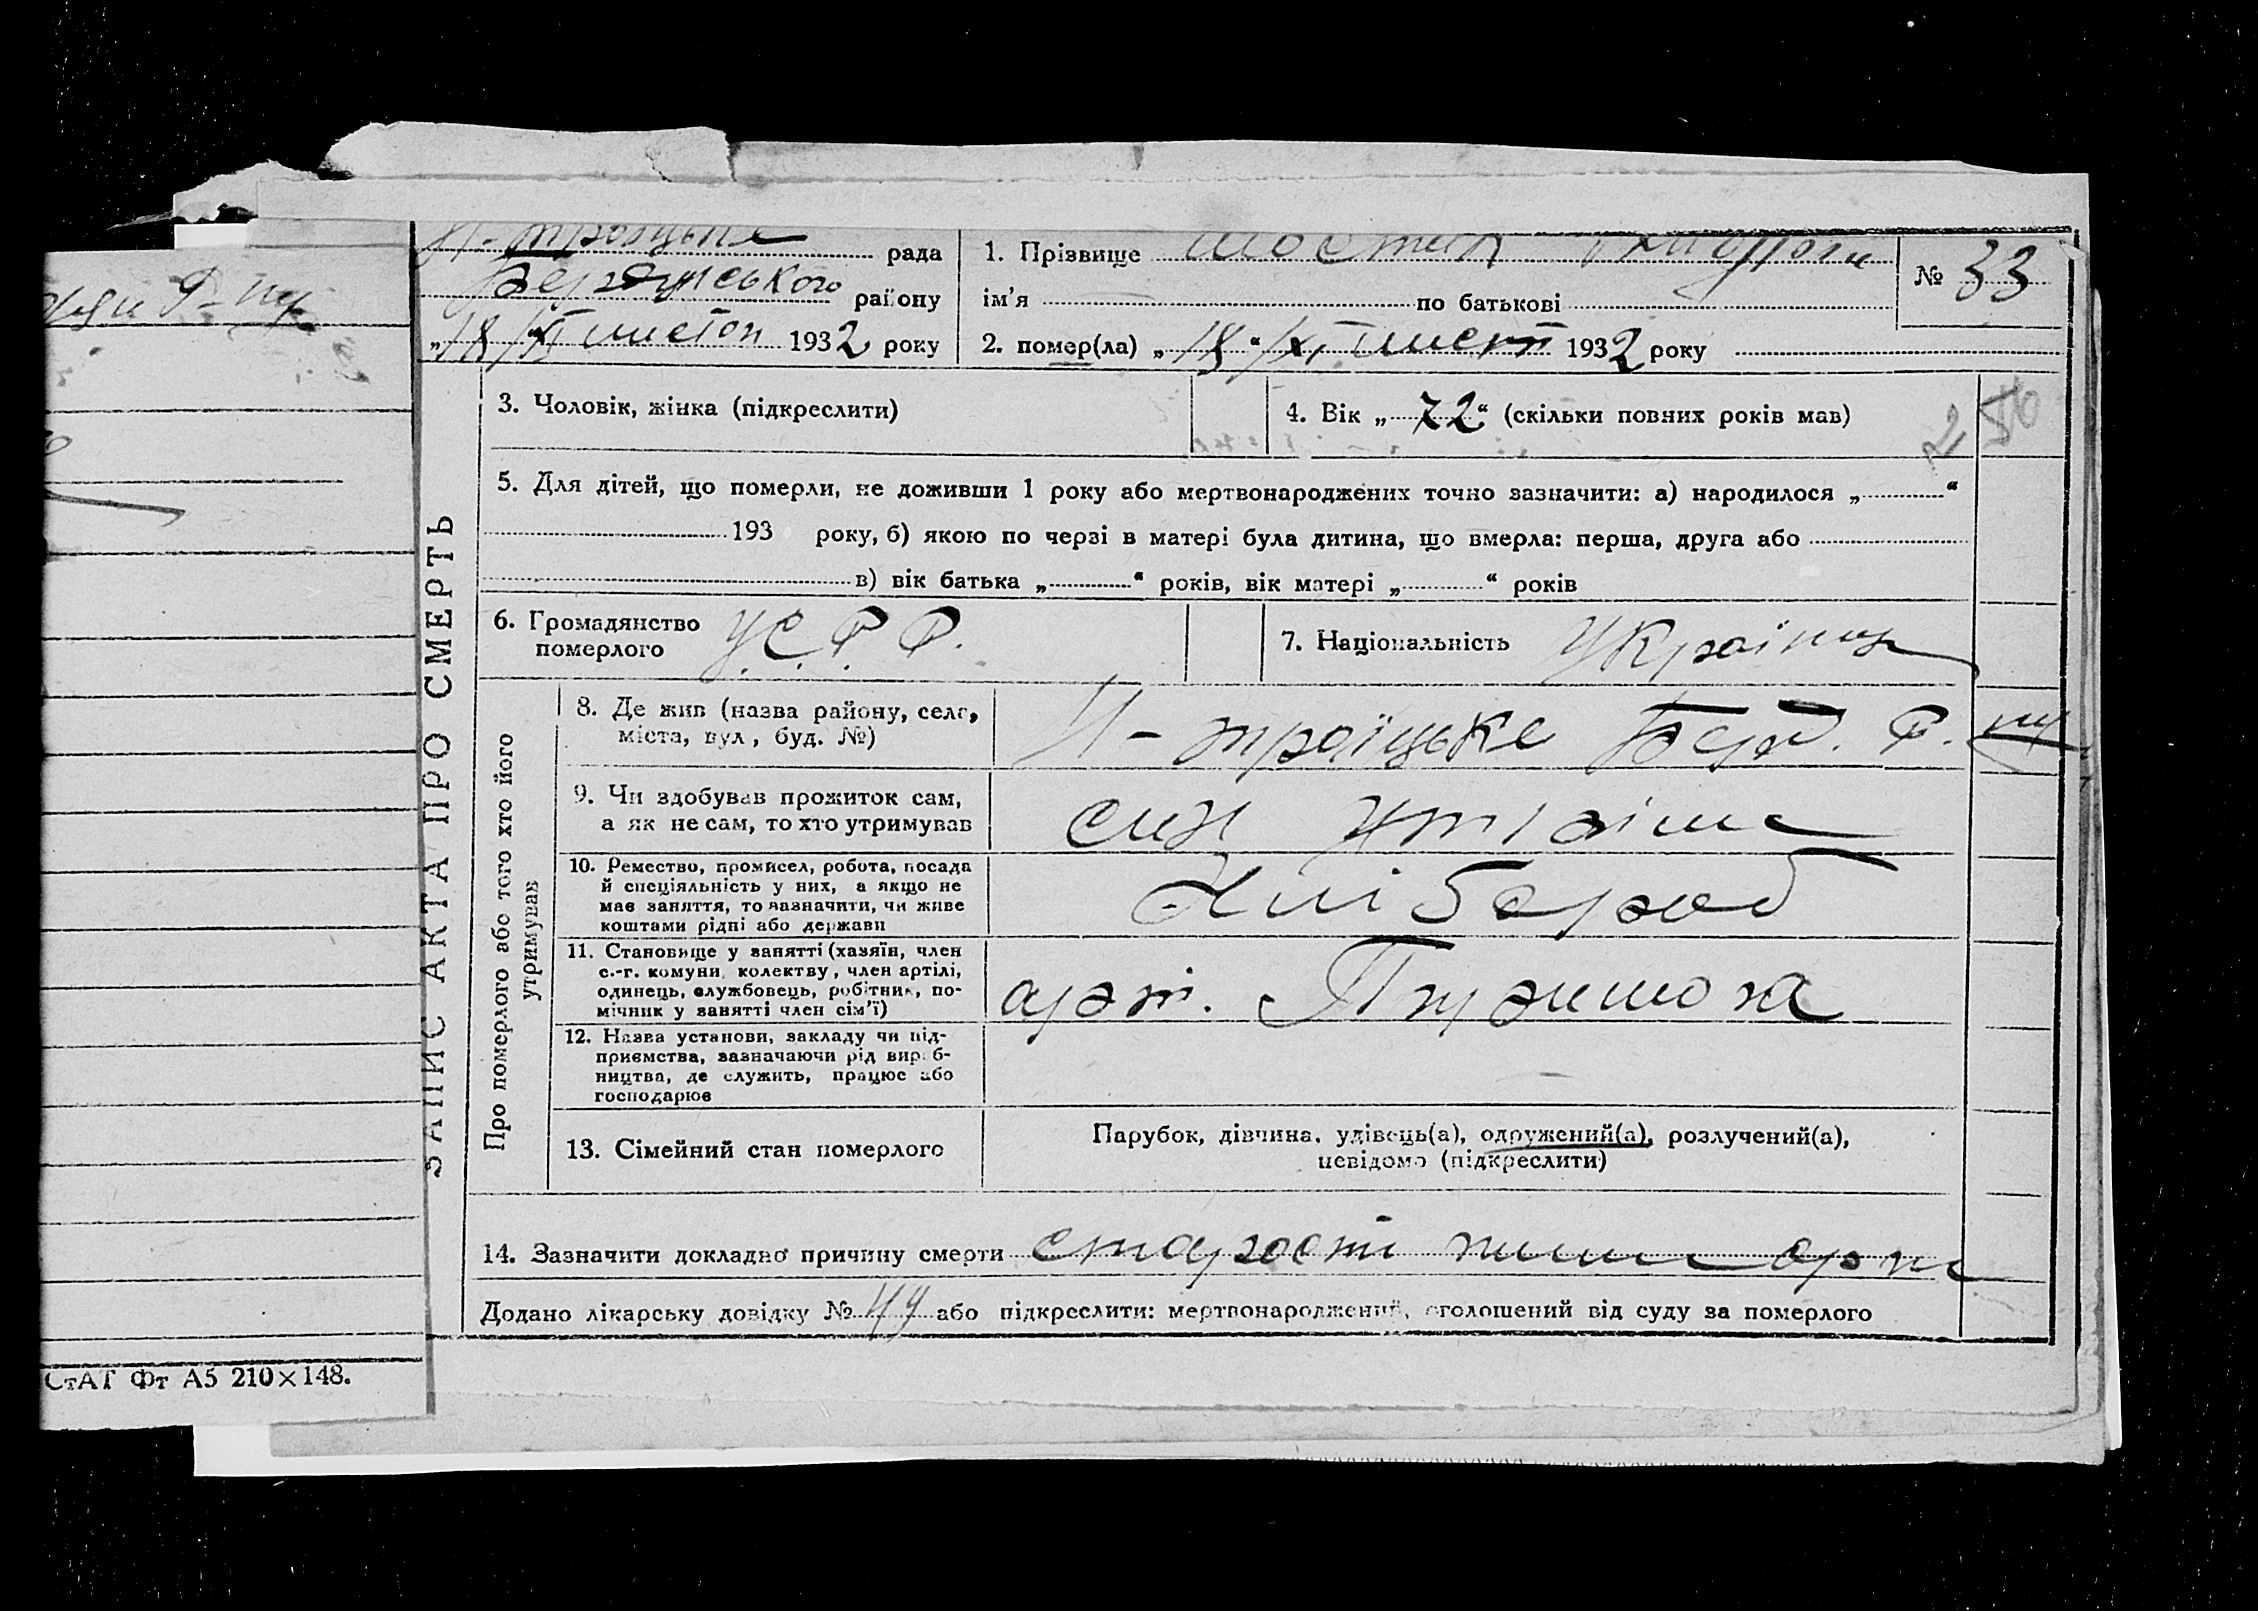 Н-троїцьке рада
Бердянського району
„18/XI листоп 1932 року
1. Прізвище
ім’я по батькові
№ 33
2. помер(ла) „18“/XI лист 1932 року
ЗАПИС АКТА ПРО СМЕРТЬ
3. Чоловік, жінка (підкреслити)
4. Вік „72“ (скільки повних років мав)
5. Для дітей, що померли, не доживши 1 року або мертвонароджених точно зазначити: а) народилося „ “
193 року, б) якою по черзі в матері була дитина, що вмерла: перша, друга або
в) вік батька „ “ років, вік матері „ “ років
6. Громадянство
померлого
У.С.Р.Р.
7. Національність Українц
Про померлого або того хто його
утримував
8. Де жив (назва району, село,
міста, вул, буд. №)
Н-троїцьке Берд. Р.
9. Чи здобував прожиток сам,
а як не сам, то хто утримував
син
10. Ремество, промисел, робота, посада
й спеціяльність у них, а якщо не
має заняття, то зазначити, чи живе
коштами рідні або держави
Хлібороб
11. Становище у занятті (хазяїн, член
с.-г. комуни, колектву, член артілі,
одинець, службовець, робітник, по-
мічник у занятті член сім’ї)
арт.
12. Назва установи, закладу чи під-
приємства, зазначаючи рід вироб-
ництва, де служить, працює або
господарює
13. Сімейний стан померлого
Парубок, дівчина, удівець(а), одружений(а), розлучений(а),
невідомо (підкреслити)
14. Зазначити докладно причину смерти старости
Додано лікарську довідку № 49 або підкреслити: мертвонароджений, оголошений від суду за померлого
СтАТ Фт А5 210×148.